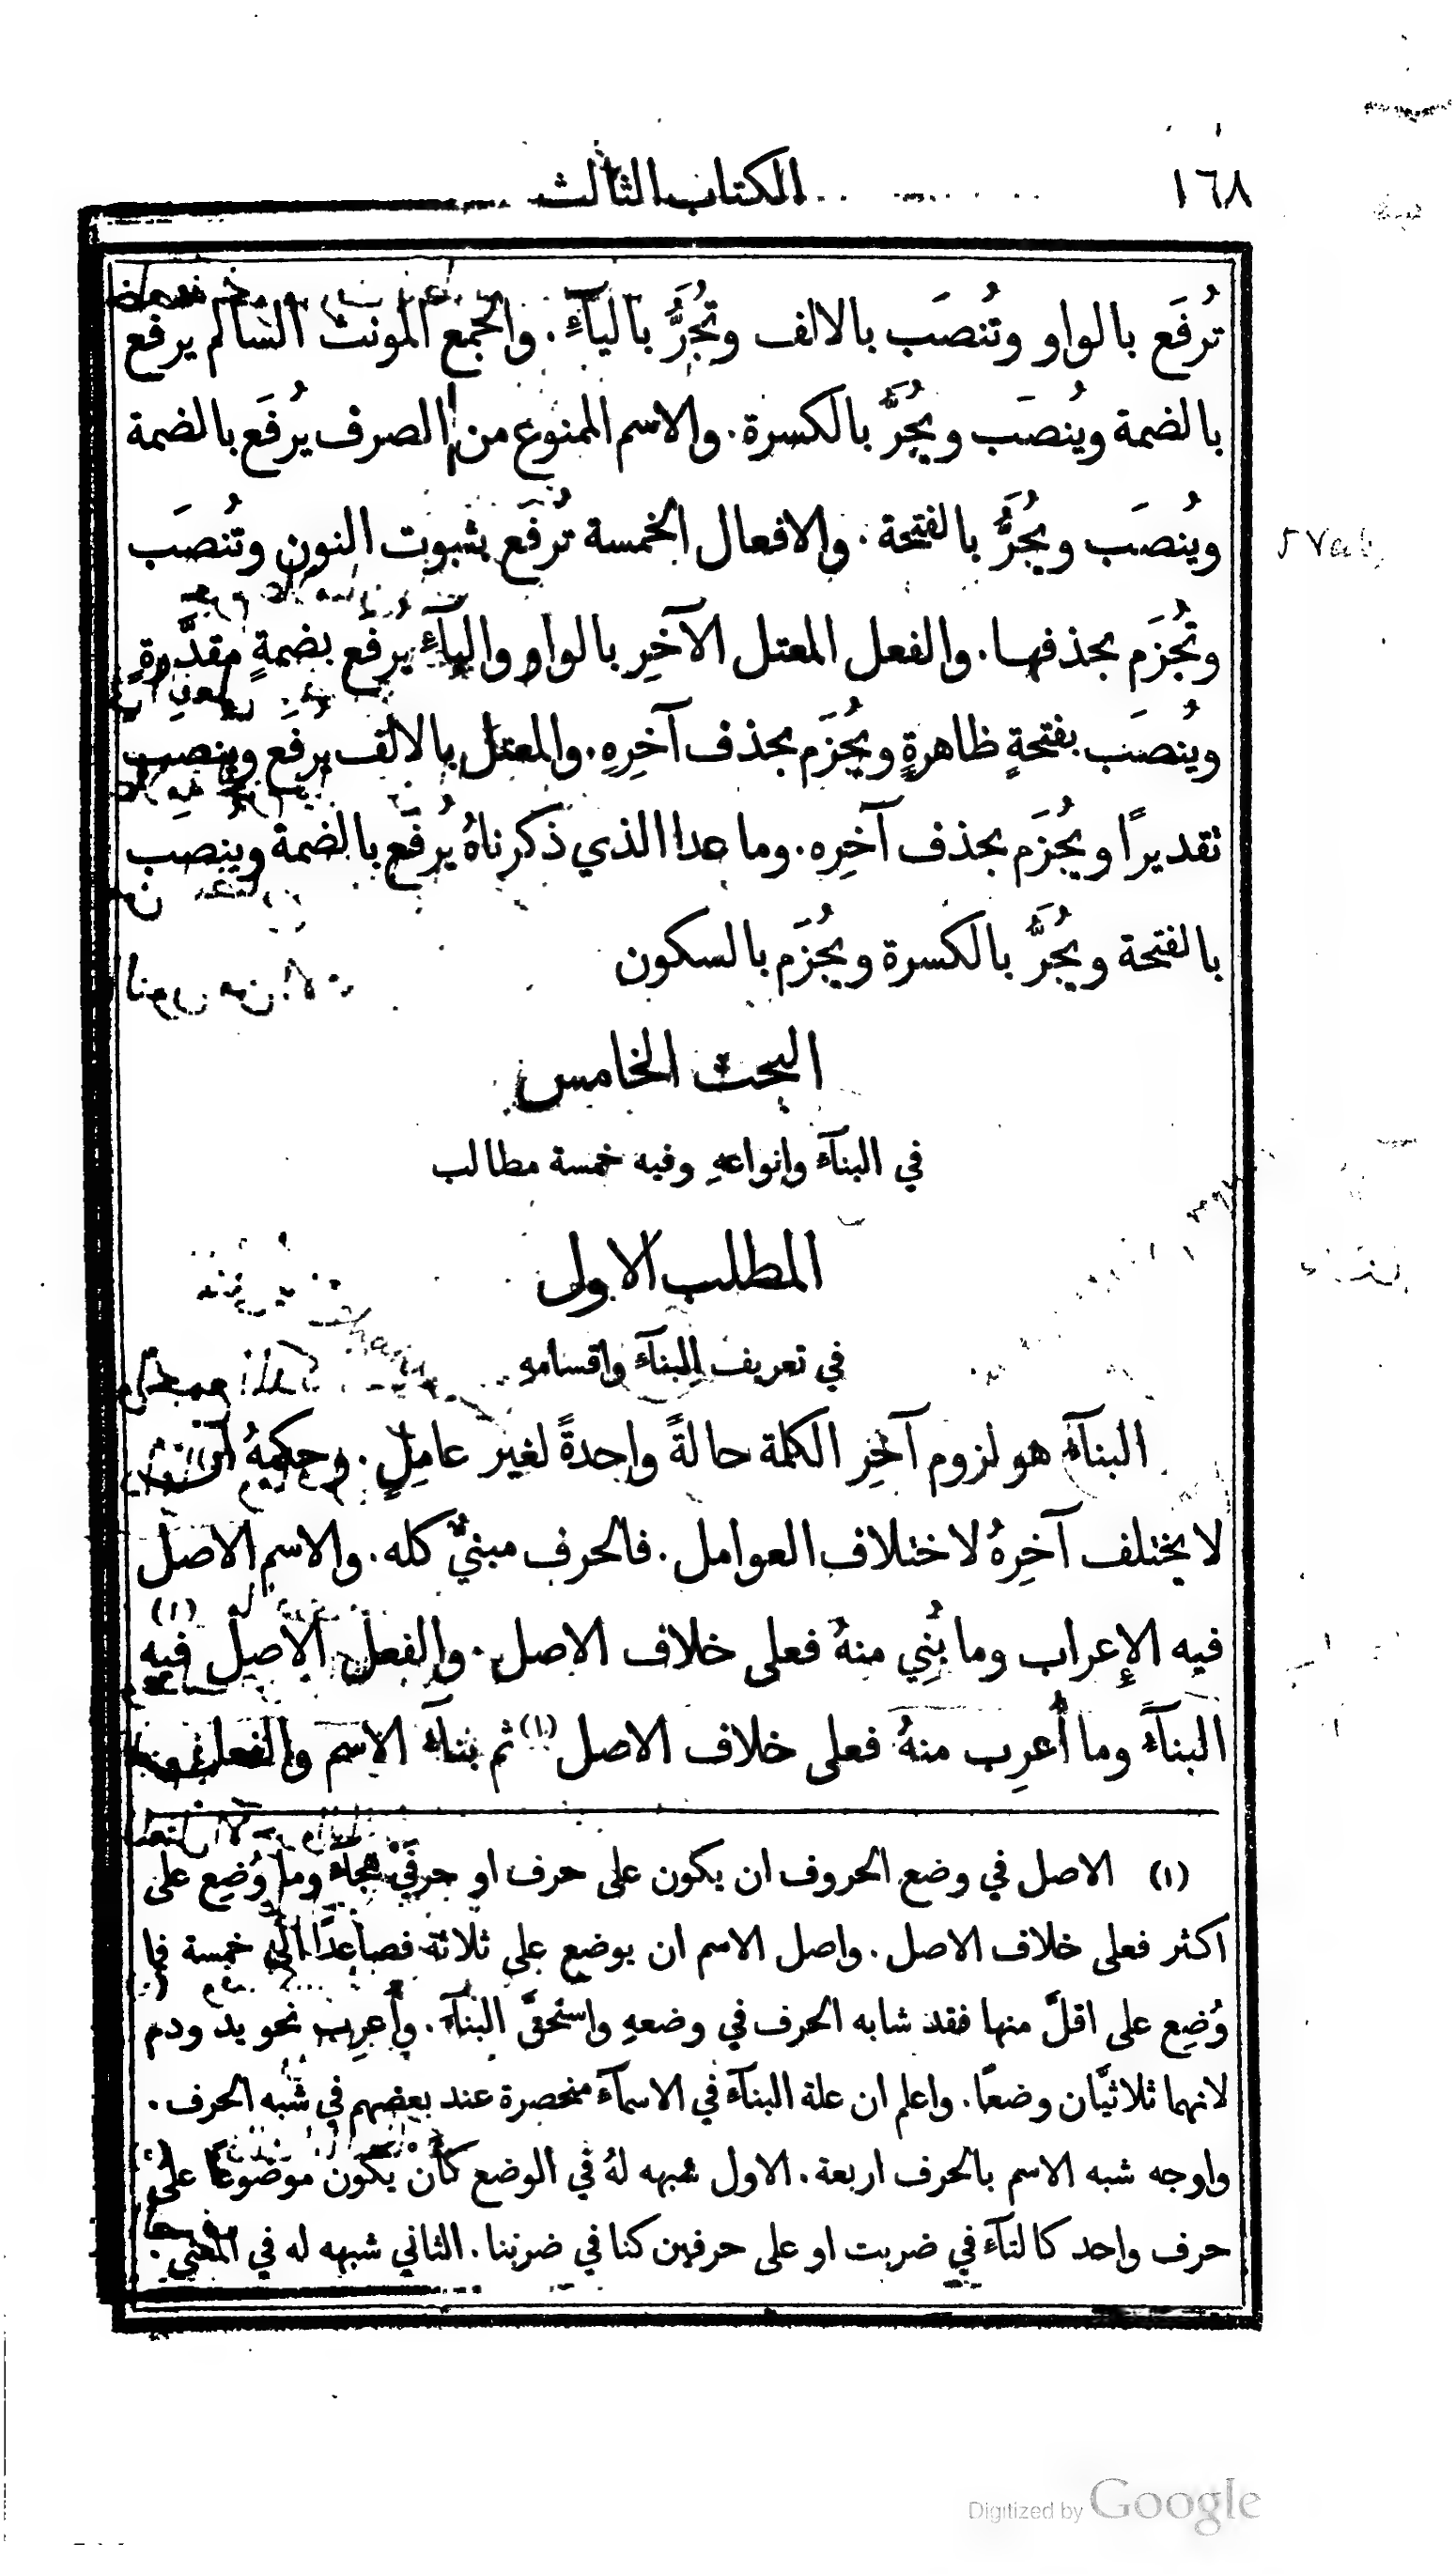 ١٦٨
الكتاب الثالث
تُرفَع بالواو وتُنصَب بالالف وتُجَرُّ باليآءِ. والجمع المونث السالم يرفع
بالضمة ويُنصَب ويُجَرُّ بالكسرة. والاسم الممنوع من الصرف يُرفَع بالضمة
ويُنصَب ويُجَرُّ بالفتحة. والافعال الخمسة تُرفَع بثبوت النون وتُنصَب
وتُجزَم بحذفها. والفعل المعتل الآخِر بالواو واليآءِ يُرفَع بضمةٍ مقدَّرةٍ
ويُنصَب بفتحةٍ ظاهرةٍ ويُجزَم بحذف آخِرِهِ. والمعتل بالالف يُرفَع وينصب
تقديرًا ويُجزَم بحذف آخِره. وما عدا الذي ذكرناهُ يُرفَع بالضمة وينصب
بالفتحة ويُجَرُّ بالكسرة ويُجزَم بالسكون
البحث الخامس
في البنآءَ وانواعهِ وفيه خمسة مطالب
المطلب الاول
في تعريف البنآءَ واقسامهِ
البنآءَ هو لزوم آخِر الكلمة حالةً واحدةً لغير عامِلٍ. وحكمهُ ان
لا يختلف آخِرهُ لاختلاف العوامل. فالحرف مبنيٌّ كله. والاسم الاصل
فيه الإعراب وما بُنِي منهُ فعلى خلاف الاصل. والفعل الاصل فيه
البنآءَ وما أُعرِب منهُ فعلى خلاف الاصل (١) ثم بنآءَ الاسم والفعل
(١) الاصل في وضع الحروف ان يكون على حرف او حرفَيْ هجآءَ وما وُضِع على
اكثر فعلى خلاف الاصل. واصل الاسم ان يوضع على ثلاثة فصاعدًا الى خمسة فما
وُضِع على اقلَّ منها فقد شابه الحرف في وضعهِ واستحقَّ البنآءَ. وأُعرِب نحو يد ودم
لانهما ثلاثيَّان وضعًا. واعلم ان علة البنآءَ في الاسمآءَ منحصرة عند بعضهم في شَبه الحرف.
واوجه شبه الاسم بالحرف اربعة. الاول شبهه لهُ في الوضع كأَن يكون موضوعًا على
حرف واحد كالتآءَ في ضربت او على حرفين كنا في ضربنا. الثاني شبهه له في المعنى.
Digitized by Google